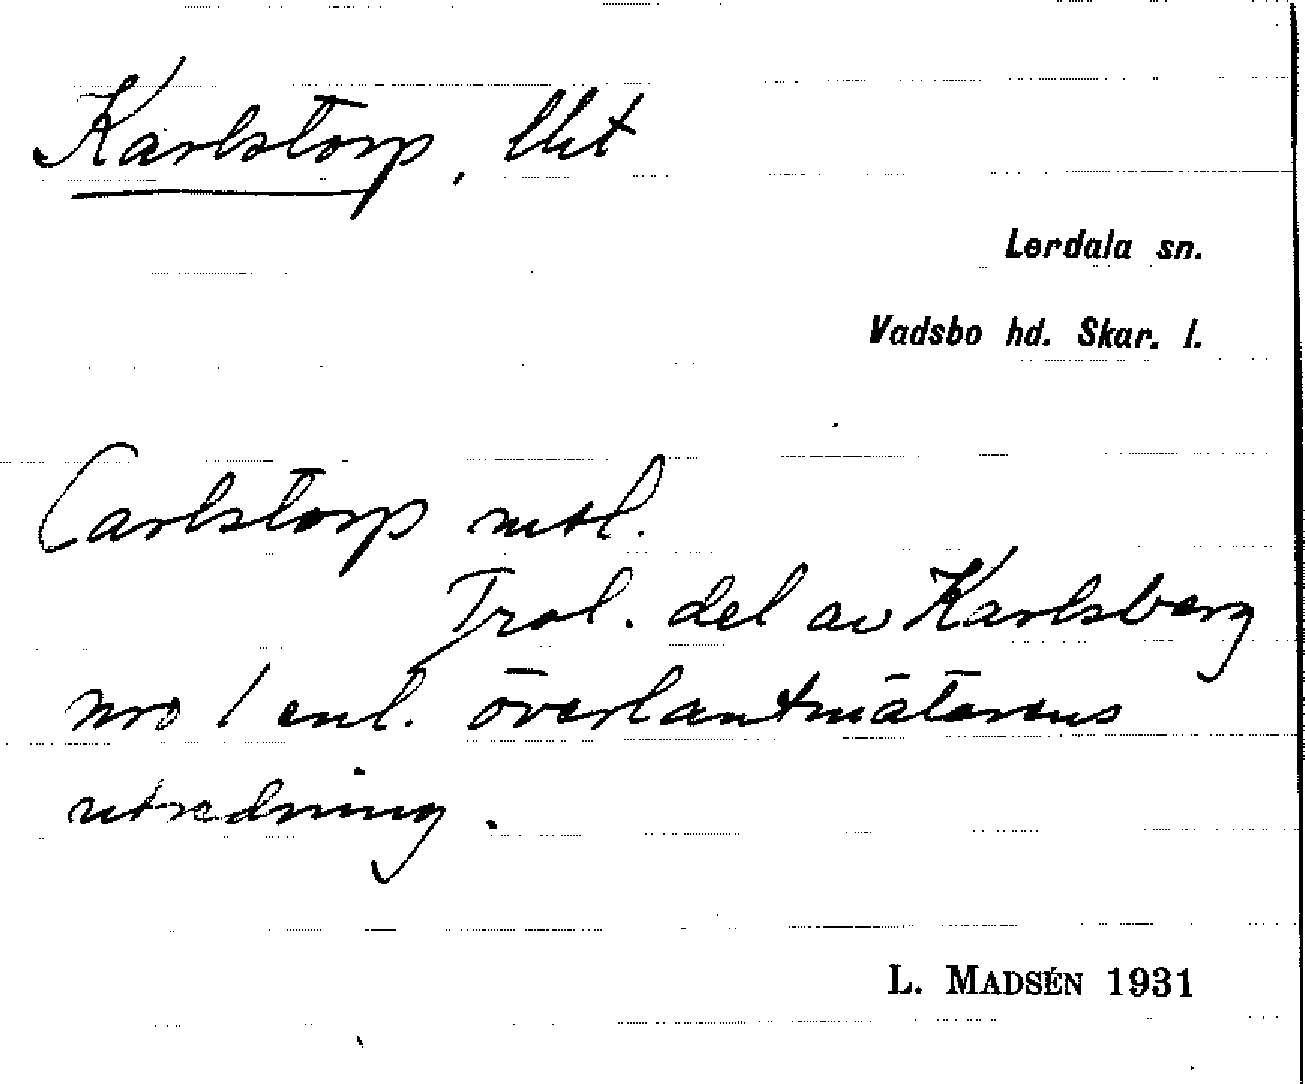 Karlstorp, lht
Lerdala sn.
Vadsbo hd. Skar. l.
Carlstorp mtl.
Trol. del av Karlsberg
nro 1 enl. överlantmätarens
utredning.
L. MADSÉN 1931